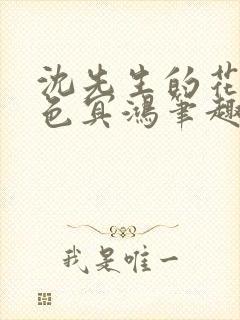 沈先生的花
色冥鸿笔趣
我是唯一